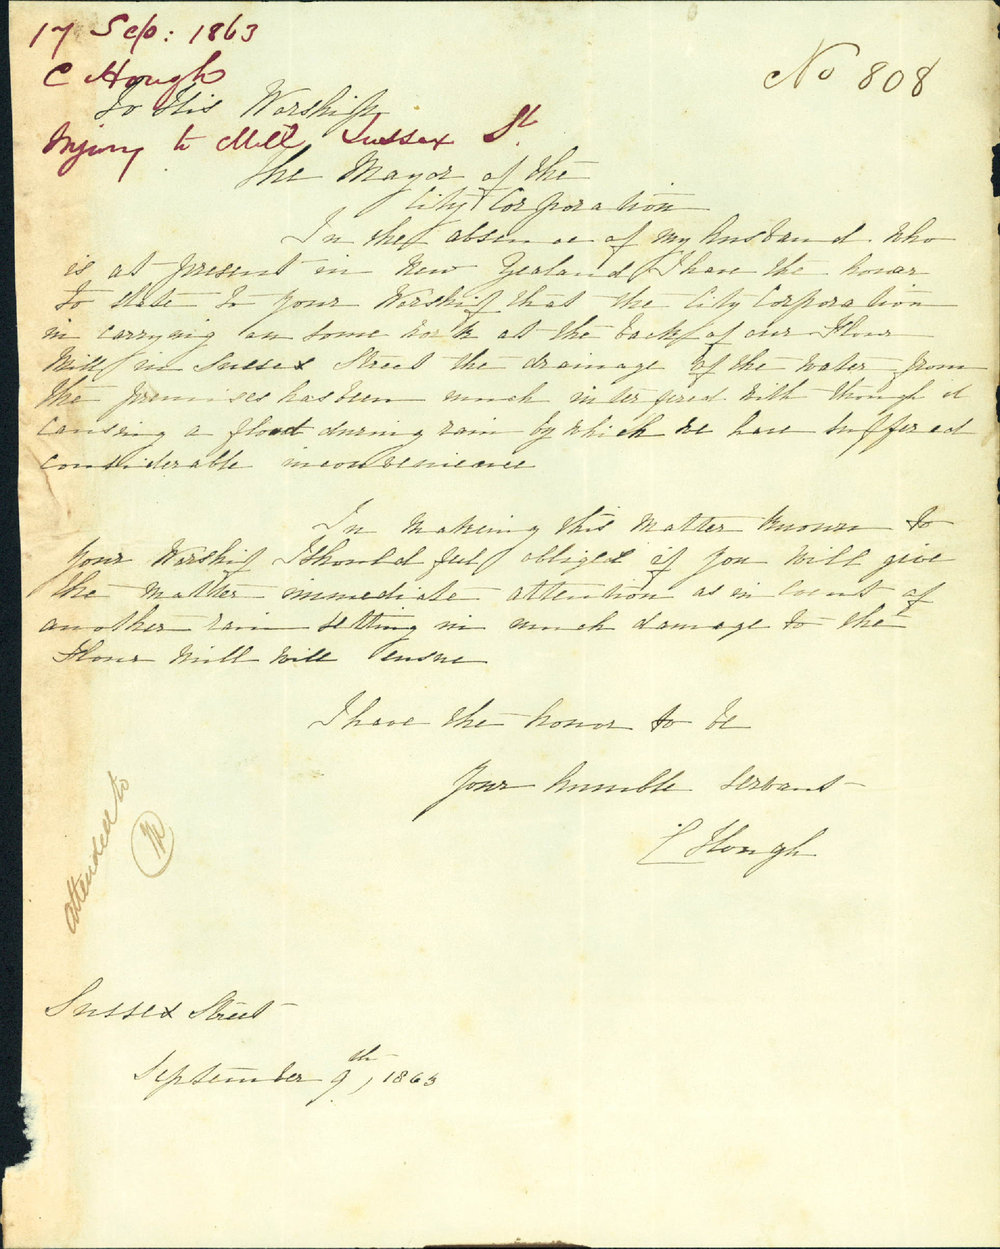 17 Sep: 1863
C Hough
No 808
To His Worship
Injury to Mill Sussex St
The Mayor of the
City Corporation
In the absence of my husband who
is at present in New Zealand I have the honor
to state to your Worship that the City Corporation
in carrying on some work at the back of our Flour
Mill in Sussex Street the drainage of the water from
the premises has been much interfered with through it
causing a flood during rain by which we have suffered
considerable inconvenience
In making this matter known to
your Worship I should feel obliged if you will give
the matter immediate attention as in event of
another rain setting in much damage to the
Flour Mill will ensue
I have the honor to be
Your humble servant
C Hough
attended to
Sussex Street
September 9th, 1863